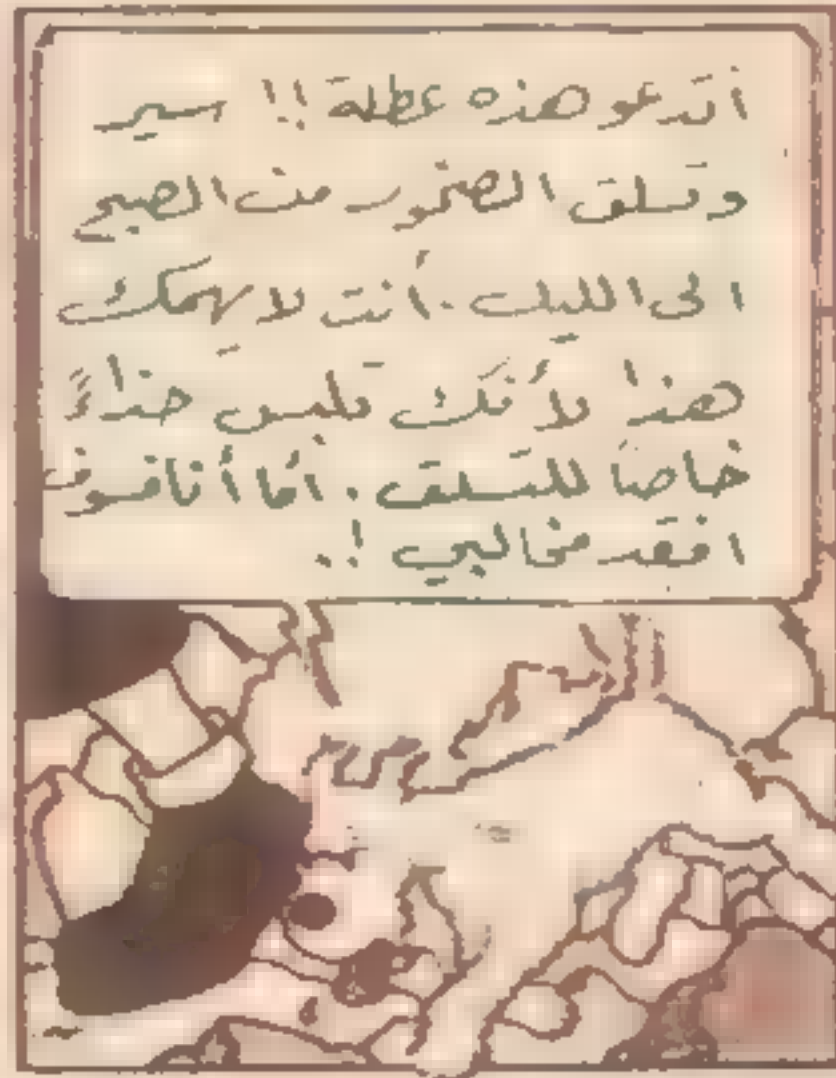 أتدعو هذه عطلة !! سير
وتسلق الصخور من الصبح
الى الليل . أنت لا يهمك
هذا لأنك تلبس حذاءً
خاصاً للتسلق . أما أنا فسوف
افقد مخالبي !.